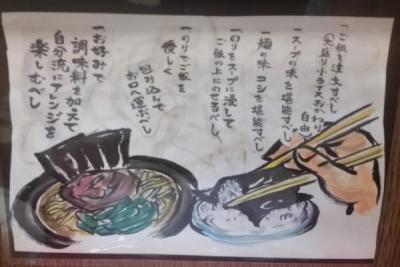 一、ご飯を注文すべし
(大盛り小ライスおかわり自由)
一、スープの味を堪能すべし
一、麺の味 コシを堪能すべし
一、のりをスープに浸して
ご飯の上にのせるべし
一、のりでご飯を
優しく
包み込んで
お口へ運ぶべし
一、お好みで
調味料を加えて
自分流にアレンジを
楽しむべし